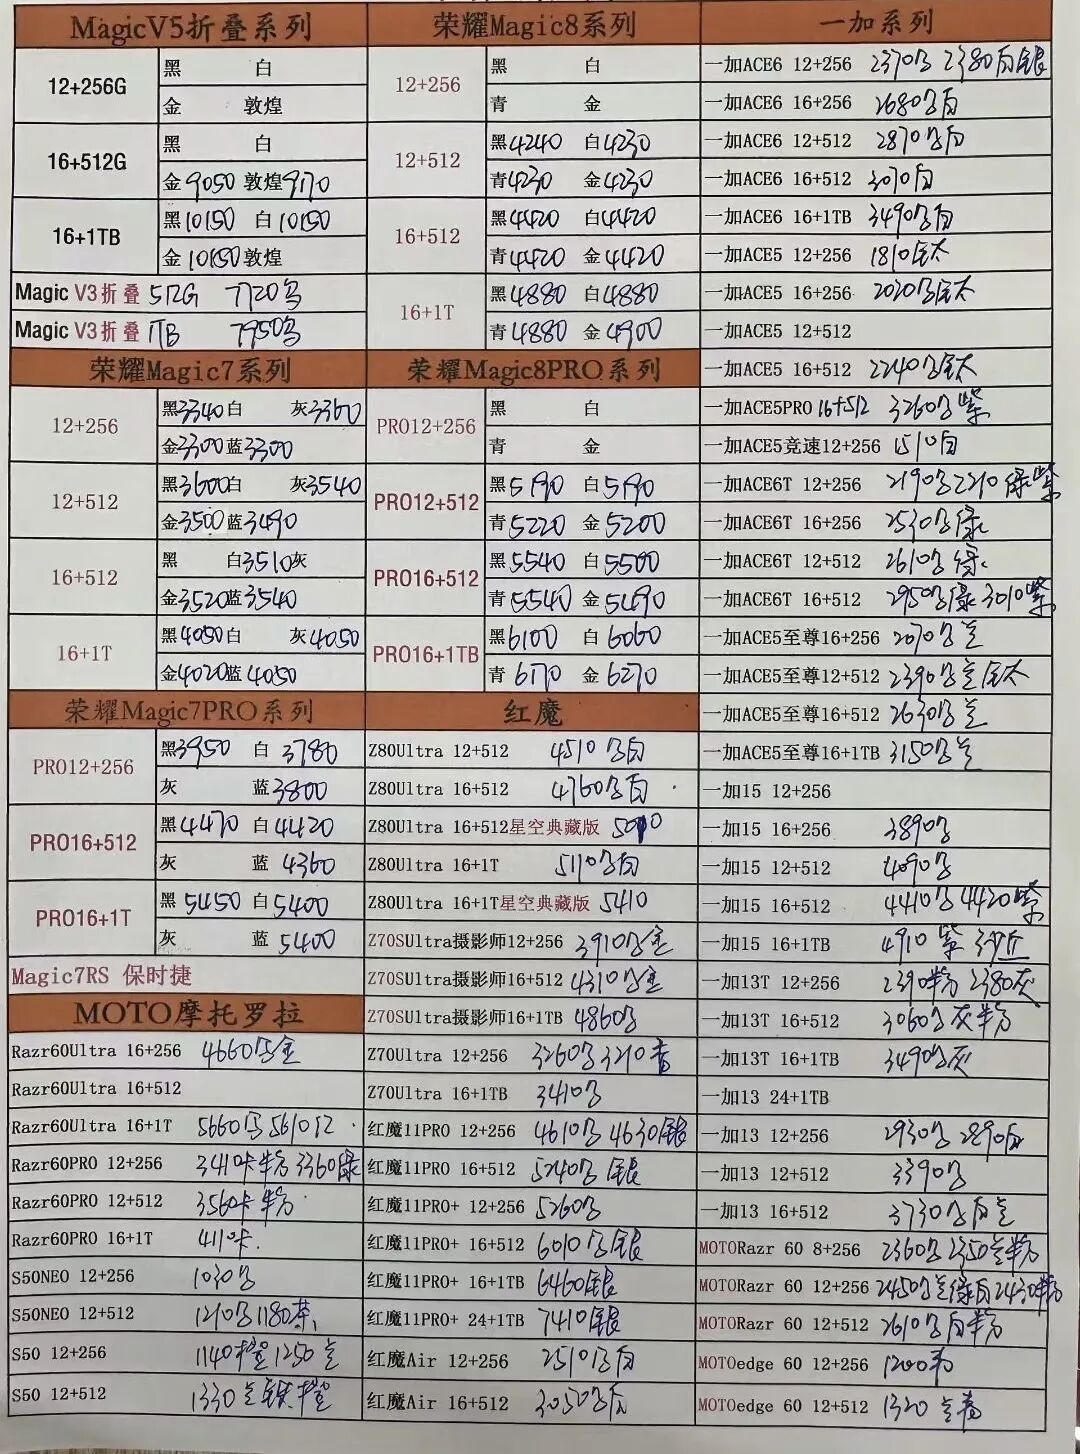 MagicV5折叠系列
12+256G
黑 白
金 敦煌
16+512G
黑 白
金9050 敦煌9170
16+1TB
黑10150 白10150
金10150敦煌
Magic V3折叠 512G 7720
Magic V3折叠 1TB 7950
荣耀Magic7系列
12+256
黑3340白 灰3360
金3300蓝3300
12+512
黑3600白 灰3540
金3500蓝3490
16+512
黑 白3510灰
金3520蓝3540
16+1T
黑4050白 灰4050
金4020蓝4050
荣耀Magic7PRO系列
PRO12+256
黑3950 白3780
灰 蓝3800
PRO16+512
黑4470 白4420
灰 蓝4360
PRO16+1T
黑5450 白5400
灰 蓝5400
Magic7RS 保时捷
MOTO摩托罗拉
Razr60Ultra 16+256 4660
Razr60Ultra 16+512
Razr60Ultra 16+1T 5660 5610红
Razr60PRO 12+256 3410卡 3360绿
Razr60PRO 12+512 3560卡
Razr60PRO 16+1T 4110卡
S50NEO 12+256 1030
S50NEO 12+512 1210 1180茶
S50 12+256 1140 1250
S50 12+512 1330
荣耀Magic8系列
12+256
黑 白
青 金
12+512
黑4240 白4230
青4230 金4230
16+512
黑4420 白4420
青4420 金4420
16+1T
黑4880 白4880
青4880 金4900
荣耀Magic8PRO系列
PRO12+256
黑 白
青 金
PRO12+512
黑5190 白5190
青5220 金5200
PRO16+512
黑5540 白5500
青5540 金5490
PRO16+1TB
黑6100 白6060
青6170 金6270
红魔
Z80Ultra 12+512 4510 白
Z80Ultra 16+512 4760 白
Z80Ultra 16+512星空典藏版
Z80Ultra 16+1T 5110 白
Z80Ultra 16+1T星空典藏版 5410
Z70SUltra摄影师12+256 3910
Z70SUltra摄影师16+512 4310
Z70SUltra摄影师16+1TB 4860
Z70Ultra 12+256 3260 3210青
Z70Ultra 16+1TB 3410
红魔11PRO 12+256 4610 4630银
红魔11PRO 16+512 5240 银
红魔11PRO+ 12+256 5260
红魔11PRO+ 16+512 6010 银
红魔11PRO+ 16+1TB 6460银
红魔11PRO+ 24+1TB 7410银
红魔Air 12+256 2510 白
红魔Air 16+512 3050 白
一加系列
一加ACE6 12+256 2370 2380白银
一加ACE6 16+256 2680 白
一加ACE6 12+512 2870 白
一加ACE6 16+512 3070白
一加ACE6 16+1TB 3490 白
一加ACE5 12+256 1810钛
一加ACE5 16+256 2020 钛
一加ACE5 12+512
一加ACE5 16+512 2240 钛
一加ACE5PRO 16+512 3260 紫
一加ACE5竞速12+256 1510白
一加ACE6T 12+256 2190 2210 绿紫
一加ACE6T 16+256 2530 绿
一加ACE6T 12+512 2610 绿
一加ACE6T 16+512 2950 绿 3010紫
一加ACE5至尊16+256 2070
一加ACE5至尊12+512 2390 钛
一加ACE5至尊16+512 2630
一加ACE5至尊16+1TB 3150
一加15 12+256
一加15 16+256 3890
一加15 12+512 4090
一加15 16+512 4410 4420紫
一加15 16+1TB 4910 紫
一加13T 12+256 2390粉 2380灰
一加13T 16+512 3060 灰粉
一加13T 16+1TB 3490灰
一加13 24+1TB
一加13 12+256 2930 2890白
一加13 12+512 3390
一加13 16+512 3730 白
MOTORazr 60 8+256 2360 2350
MOTORazr 60 12+256 2450 绿白2430
MOTORazr 60 12+512 2610 白
MOTOedge 60 12+256 1200
MOTOedge 60 12+512 1320 青